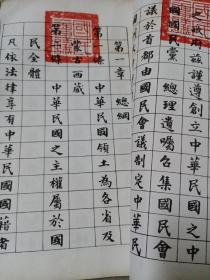 之政府茲謹遵創立中華民國之中
國國民黨 總理遺囑召集國民會
議於首都由國民會議制定中華民
第一章 總綱
第一條 中華民國領土為各省及
蒙古西藏
第二條 中華民國之主權屬於國
民全體
凡依法律享有中華民國國籍者